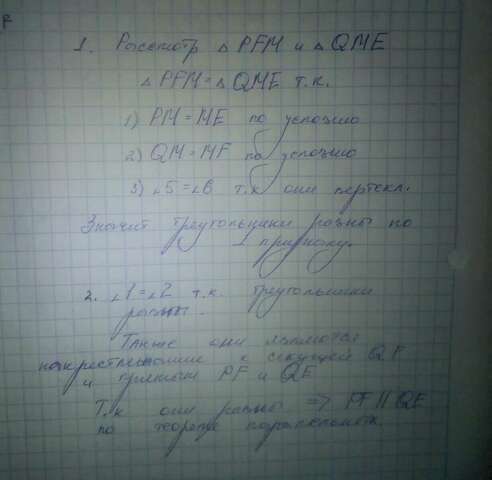 1. Рассмотр △ PFM и △ QME
△ PFM = △ QME т.к.
1) PM = ME по условию
2) QM = MF по условию
3) ∠5 = ∠6 т.к они вертекл.
Значит треугольники равны по
1 признаку.
2. ∠1 = ∠2 т.к. треугольники
равны.
Также они являются
накрестлежащие к секущей QF
и прямым PF и QE
Т.к они равны => PF || QE
по теореме